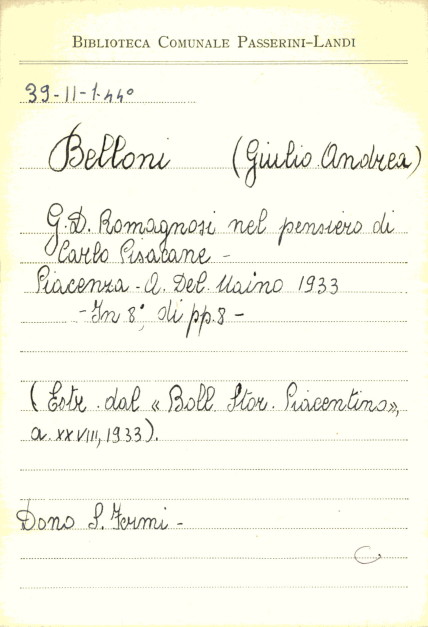 BIBLIOTECA COMUNALE PASSERINI-LANDI
39-II-1.44º
Belloni (Giulio Andrea)
G.D. Romagnosi nel pensiero di
Carlo Pisacane -
Piacenza - A. Del Maino 1933
- In 8º di pp. 8 -
(Estr. dal « Boll. Stor. Piacentino»,
a. XXVIII, 1933).
Dono S. Fermi -